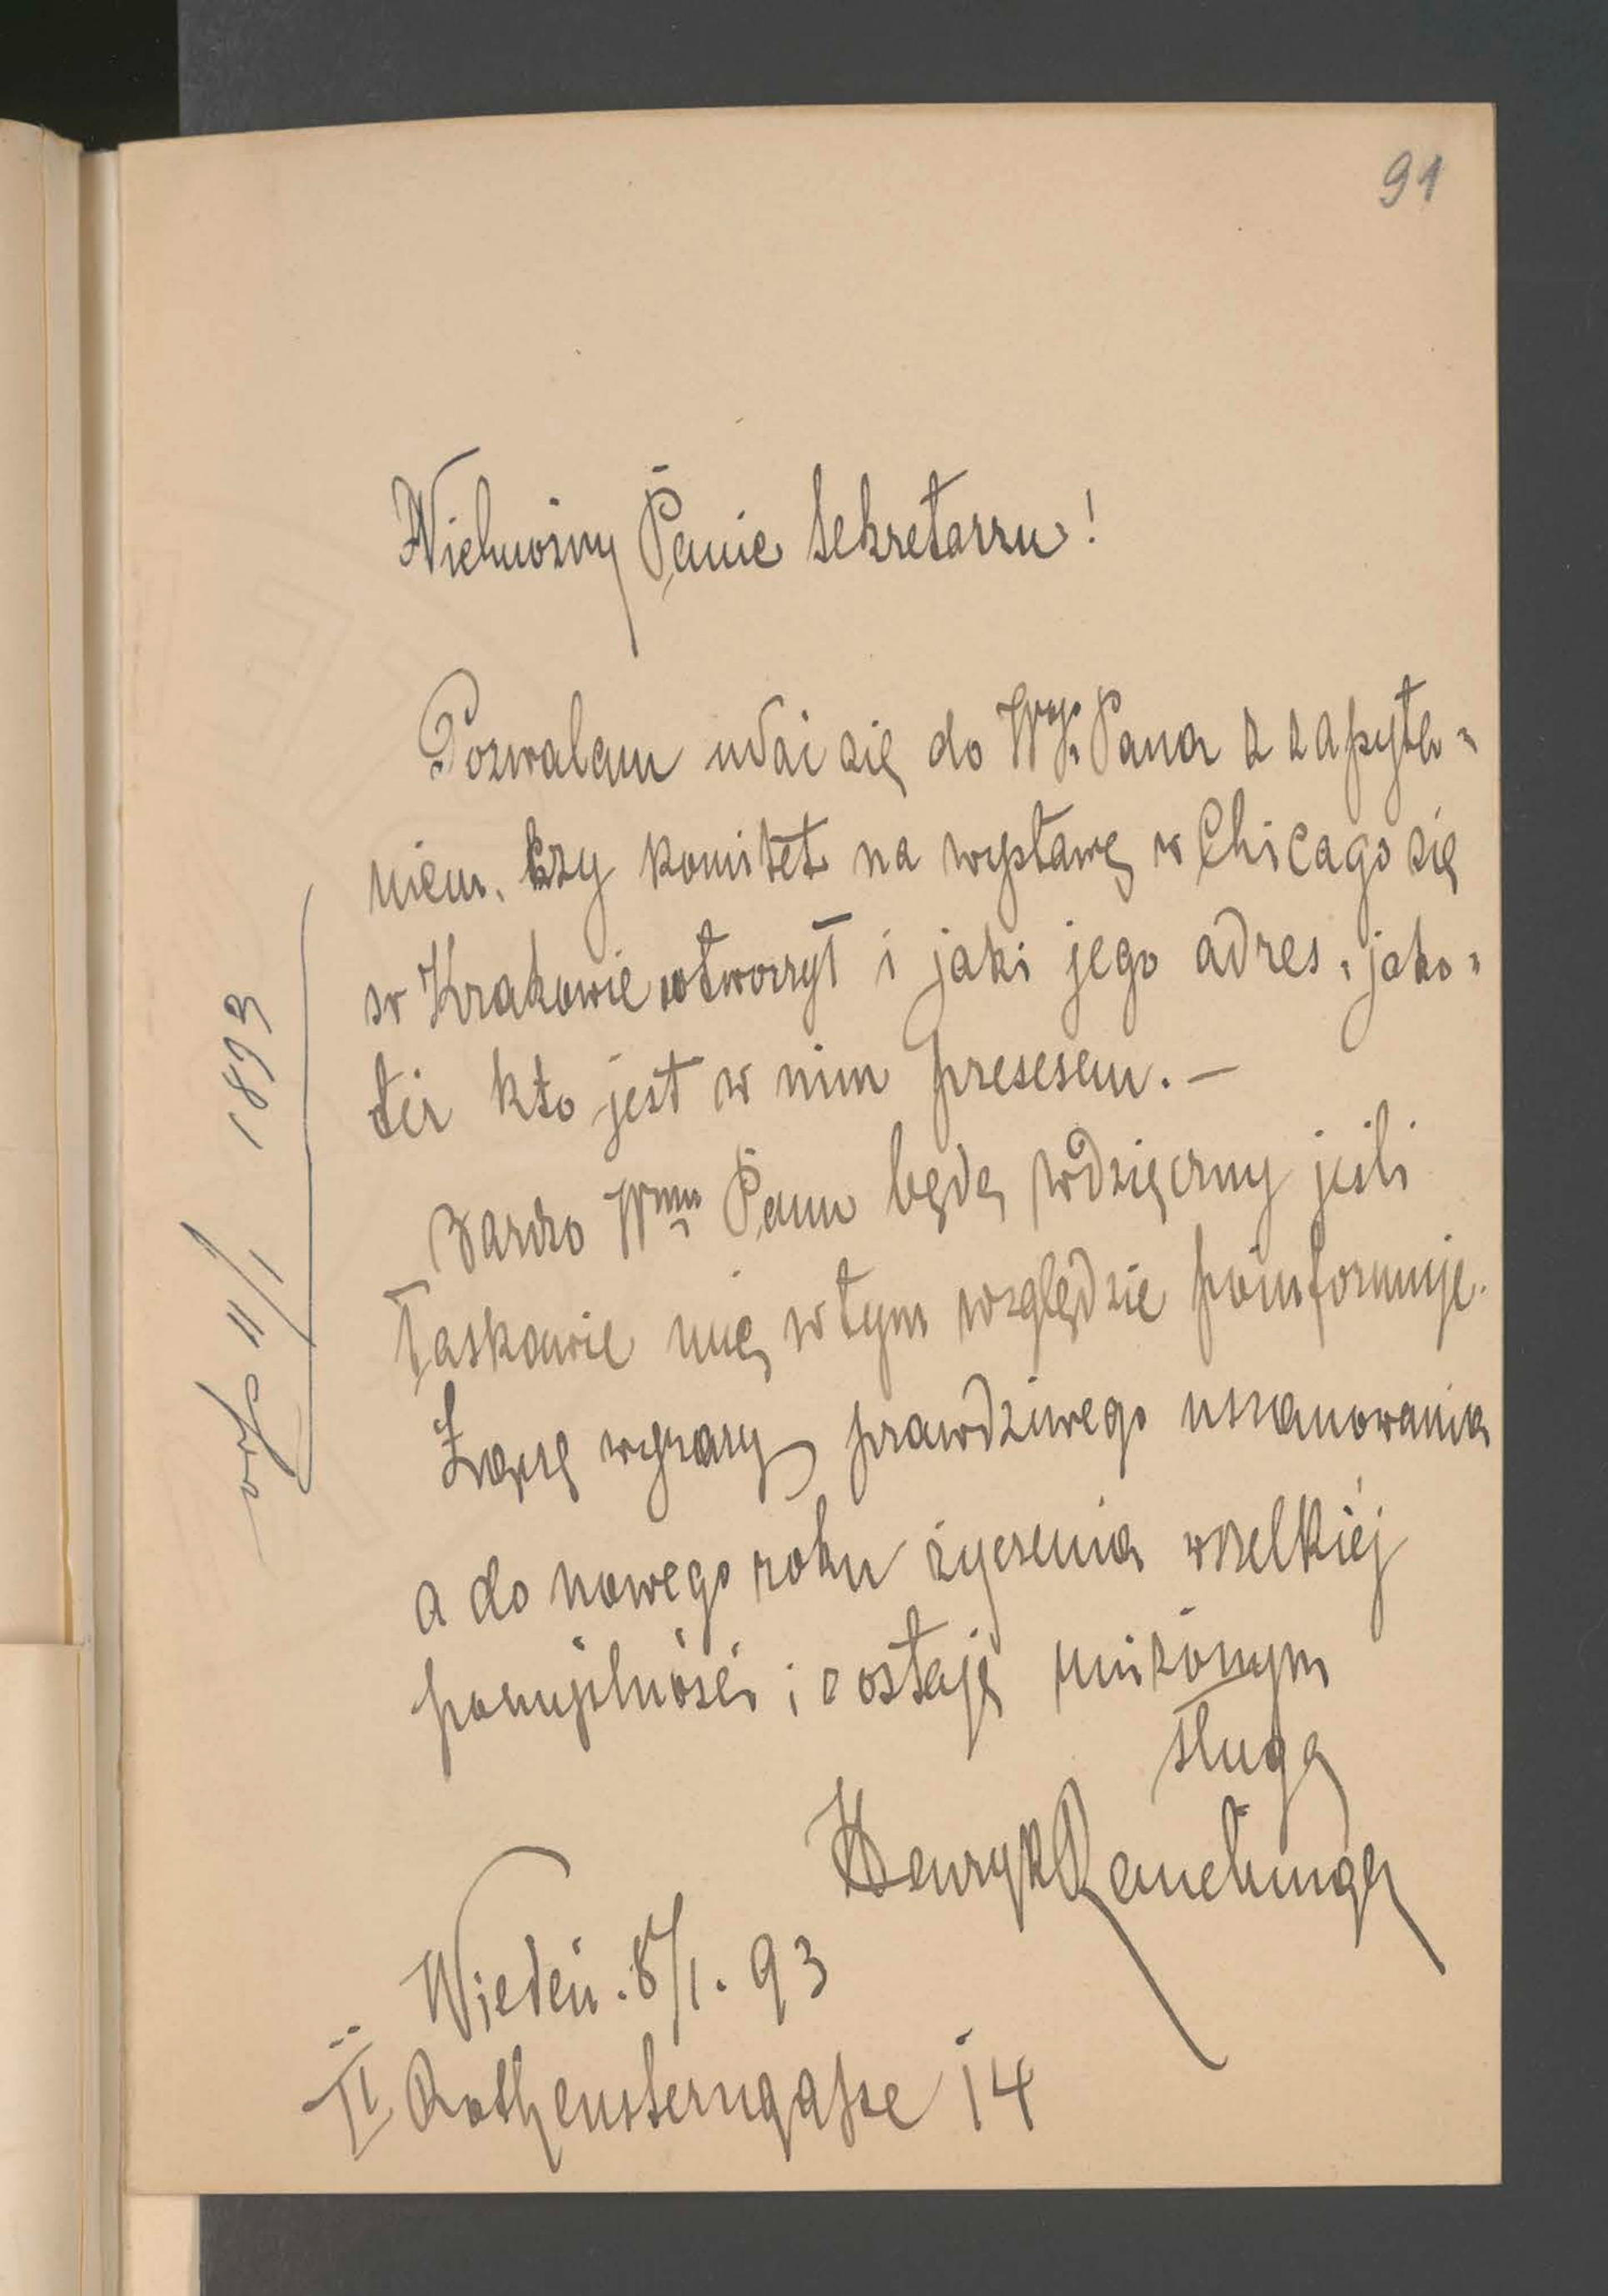 91
Wielmożny Panie Sekretarzu!
Pozwalam udać się do Wgo. Pana z zapyta-
niem, czy komitet na wystawę w Chicago się
w Krakowie utworzył i jaki jego adres, jako-
też kto jest w nim prezesem. —
Bardzo Wmu Panu będę wdzięczny jeśli
łaskawie mię w tym względzie poinformuje.
Łączę wyrazy prawdziwego uszanowania
a do nowego roku życzenia wszelkiéj
pomyślności i zostaję uniżonym
sługą
Henryk Rauchinger
Wiedeń. 8/1. 93
II Rothensterngasse 14
11/1 1893